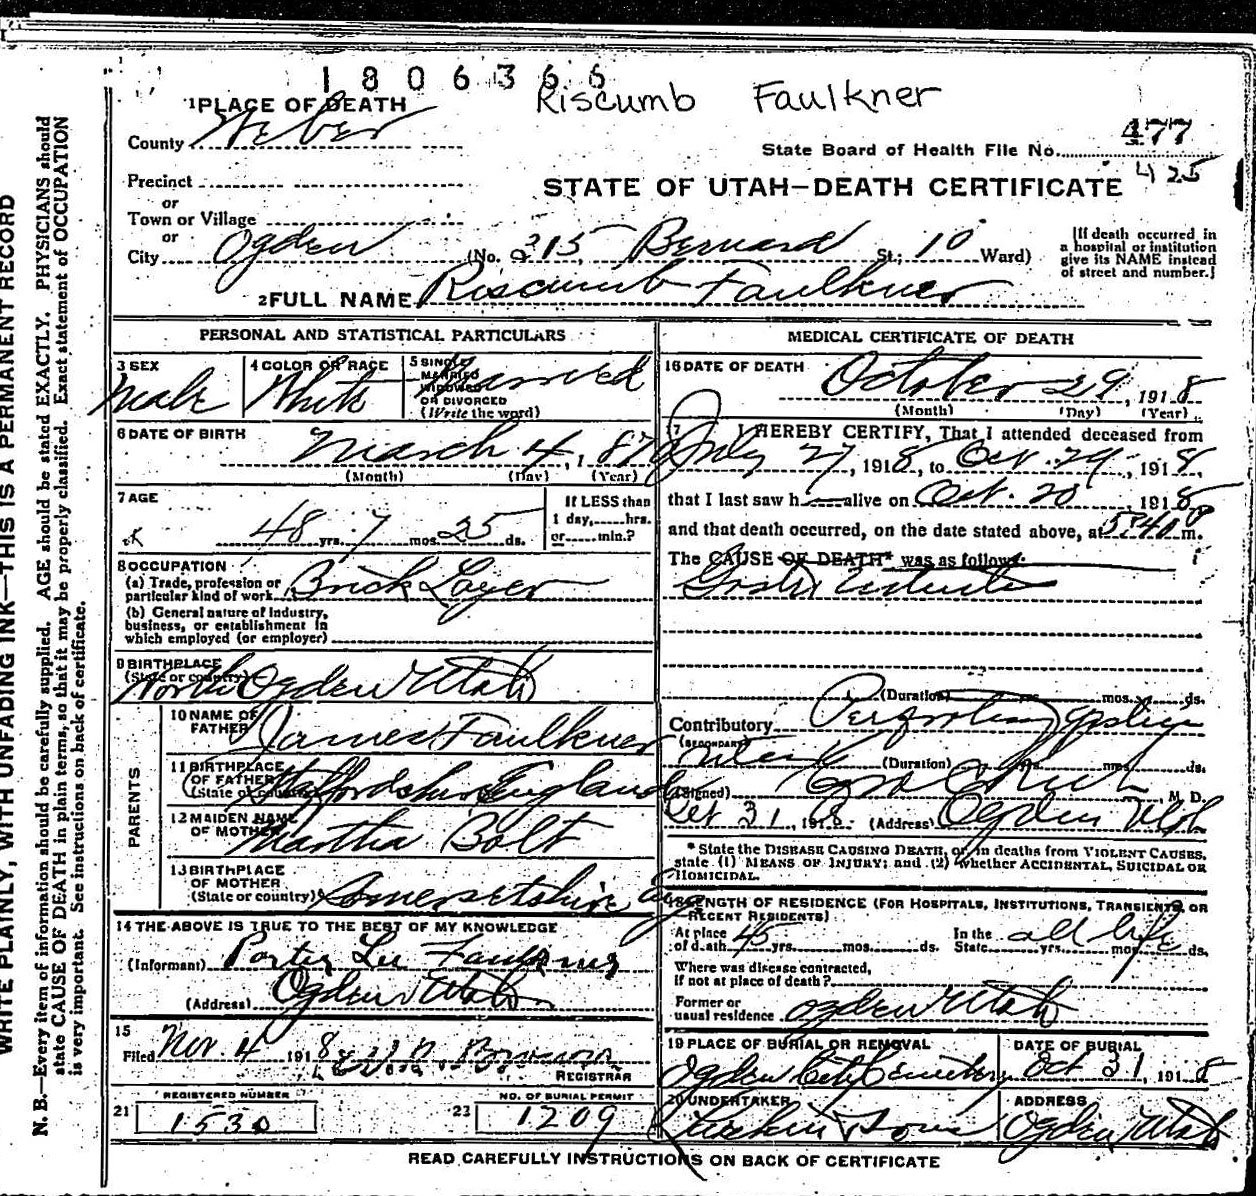 1806366
Riscumb Faulkner
1 PLACE OF DEATH
County Weber
State Board of Health File No. 477
425
Precinct
or
STATE OF UTAH—DEATH CERTIFICATE
Town or Village
or
City Ogden (No. 315 Bernard St; 10 Ward)
[If death occurred in
a hospital or institution
give its NAME instead
of street and number.]
2 FULL NAME Riscumb Faulkner
PERSONAL AND STATISTICAL PARTICULARS
3 SEX
Male
4 COLOR OR RACE
White
5 SINGLE
MARRIED
WIDOWED
OR DIVORCED
(Write the word)
Married
6 DATE OF BIRTH
March 4, 1870
(Month) (Day) (Year)
7 AGE
48 yrs. 7 mos. 25 ds.
If LESS than
1 day, hrs.
or min.?
8 OCCUPATION
(a) Trade, profession or
particular kind of work Brick Layer
(b) General nature of Industry,
business, or establishment in
which employed (or employer)
9 BIRTHPLACE
(State or country)
North Ogden Utah
PARENTS
10 NAME OF
FATHER James Faulkner
11 BIRTHPLACE
OF FATHER
(State or country) Staffordshire England
12 MAIDEN NAME
OF MOTHER Martha Bolt
13 BIRTHPLACE
OF MOTHER
(State or country) Somersetshire Eng
14 THE ABOVE IS TRUE TO THE BEST OF MY KNOWLEDGE
(Informant) Porter Lee Faulkner
(Address) Ogden Utah
15
Filed Nov. 4 1918
REGISTRAR
REGISTERED NUMBER
21 1530
NO. OF BURIAL PERMIT
23 1209
MEDICAL CERTIFICATE OF DEATH
16 DATE OF DEATH
October 29, 1918
(Month) (Day) (Year)
17 I HEREBY CERTIFY, That I attended deceased from
July 27, 1918, to Oct. 29, 1918
that I last saw h alive on Oct. 20 1918
and that death occurred, on the date stated above, at 5:40 P m.
The CAUSE OF DEATH* was as follows:
(Duration) yrs. mos. ds.
Contributory
(SECONDARY)
(Duration) yrs. mos. ds.
(Signed) M. D.
Oct 31, 1918 (Address) Ogden Utah
* State the DISEASE CAUSING DEATH, or, in deaths from VIOLENT CAUSES,
state (1) MEANS OF INJURY; and (2) whether ACCIDENTAL, SUICIDAL OR
HOMICIDAL.
18 LENGTH OF RESIDENCE (FOR HOSPITALS, INSTITUTIONS, TRANSIENTS, OR
RECENT RESIDENTS)
At place
of death 45 yrs. mos. ds.
In the
State all life yrs. mos. ds.
Where was disease contracted,
if not at place of death?
Former or
usual residence Ogden Utah
19 PLACE OF BURIAL OR REMOVAL
Ogden City Cemetery
DATE OF BURIAL
Oct 31, 1918
20 UNDERTAKER
Larkin & Sons
ADDRESS
Ogden, Utah
READ CAREFULLY INSTRUCTIONS ON BACK OF CERTIFICATE
WRITE PLAINLY, WITH UNFADING INK—THIS IS A PERMANENT RECORD
N. B.—Every item of information should be carefully supplied. AGE should be stated EXACTLY. PHYSICIANS should
state CAUSE OF DEATH in plain terms, so that it may be properly classified. Exact statement of OCCUPATION
is very important. See instructions on back of certificate.